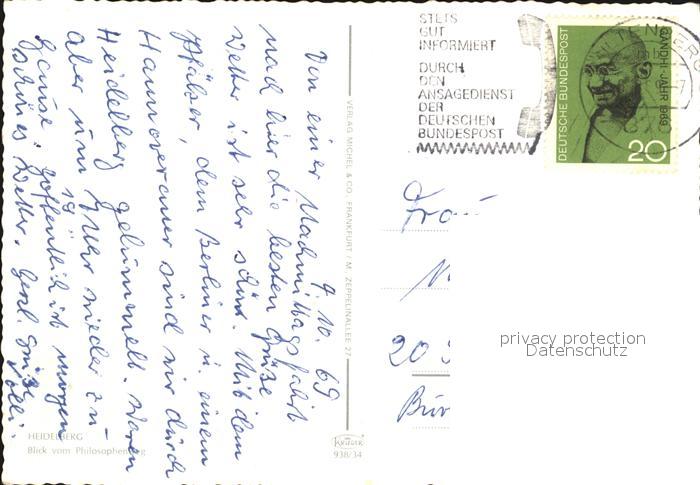 9.10.69
Von einer Nachmittagsfahrt
nach hier die besten Grüße
Wetter ist sehr schön. Mit dem
Pfälzer, dem Berliner u. einem
Hannoveraner sind wir durch
Heidelberg gebummelt. Waren
aber um 19 Uhr wieder zu-
hause. Hoffentlich ist morgen
schönes Wetter. Herzl. Grüße
HEIDELBERG
Blick vom Philosophenweg
VERLAG MICHEL & CO. FRANKFURT / M. ZEPPELINALLEE 27
Krüger
938/34
STETS
GUT
INFORMIERT
DURCH
DEN
ANSAGEDIENST
DER
DEUTSCHEN
BUNDESPOST
DEUTSCHE BUNDESPOST
GANDHI-JAHR 1969
20
Frau
20
privacy protection
Datenschutz